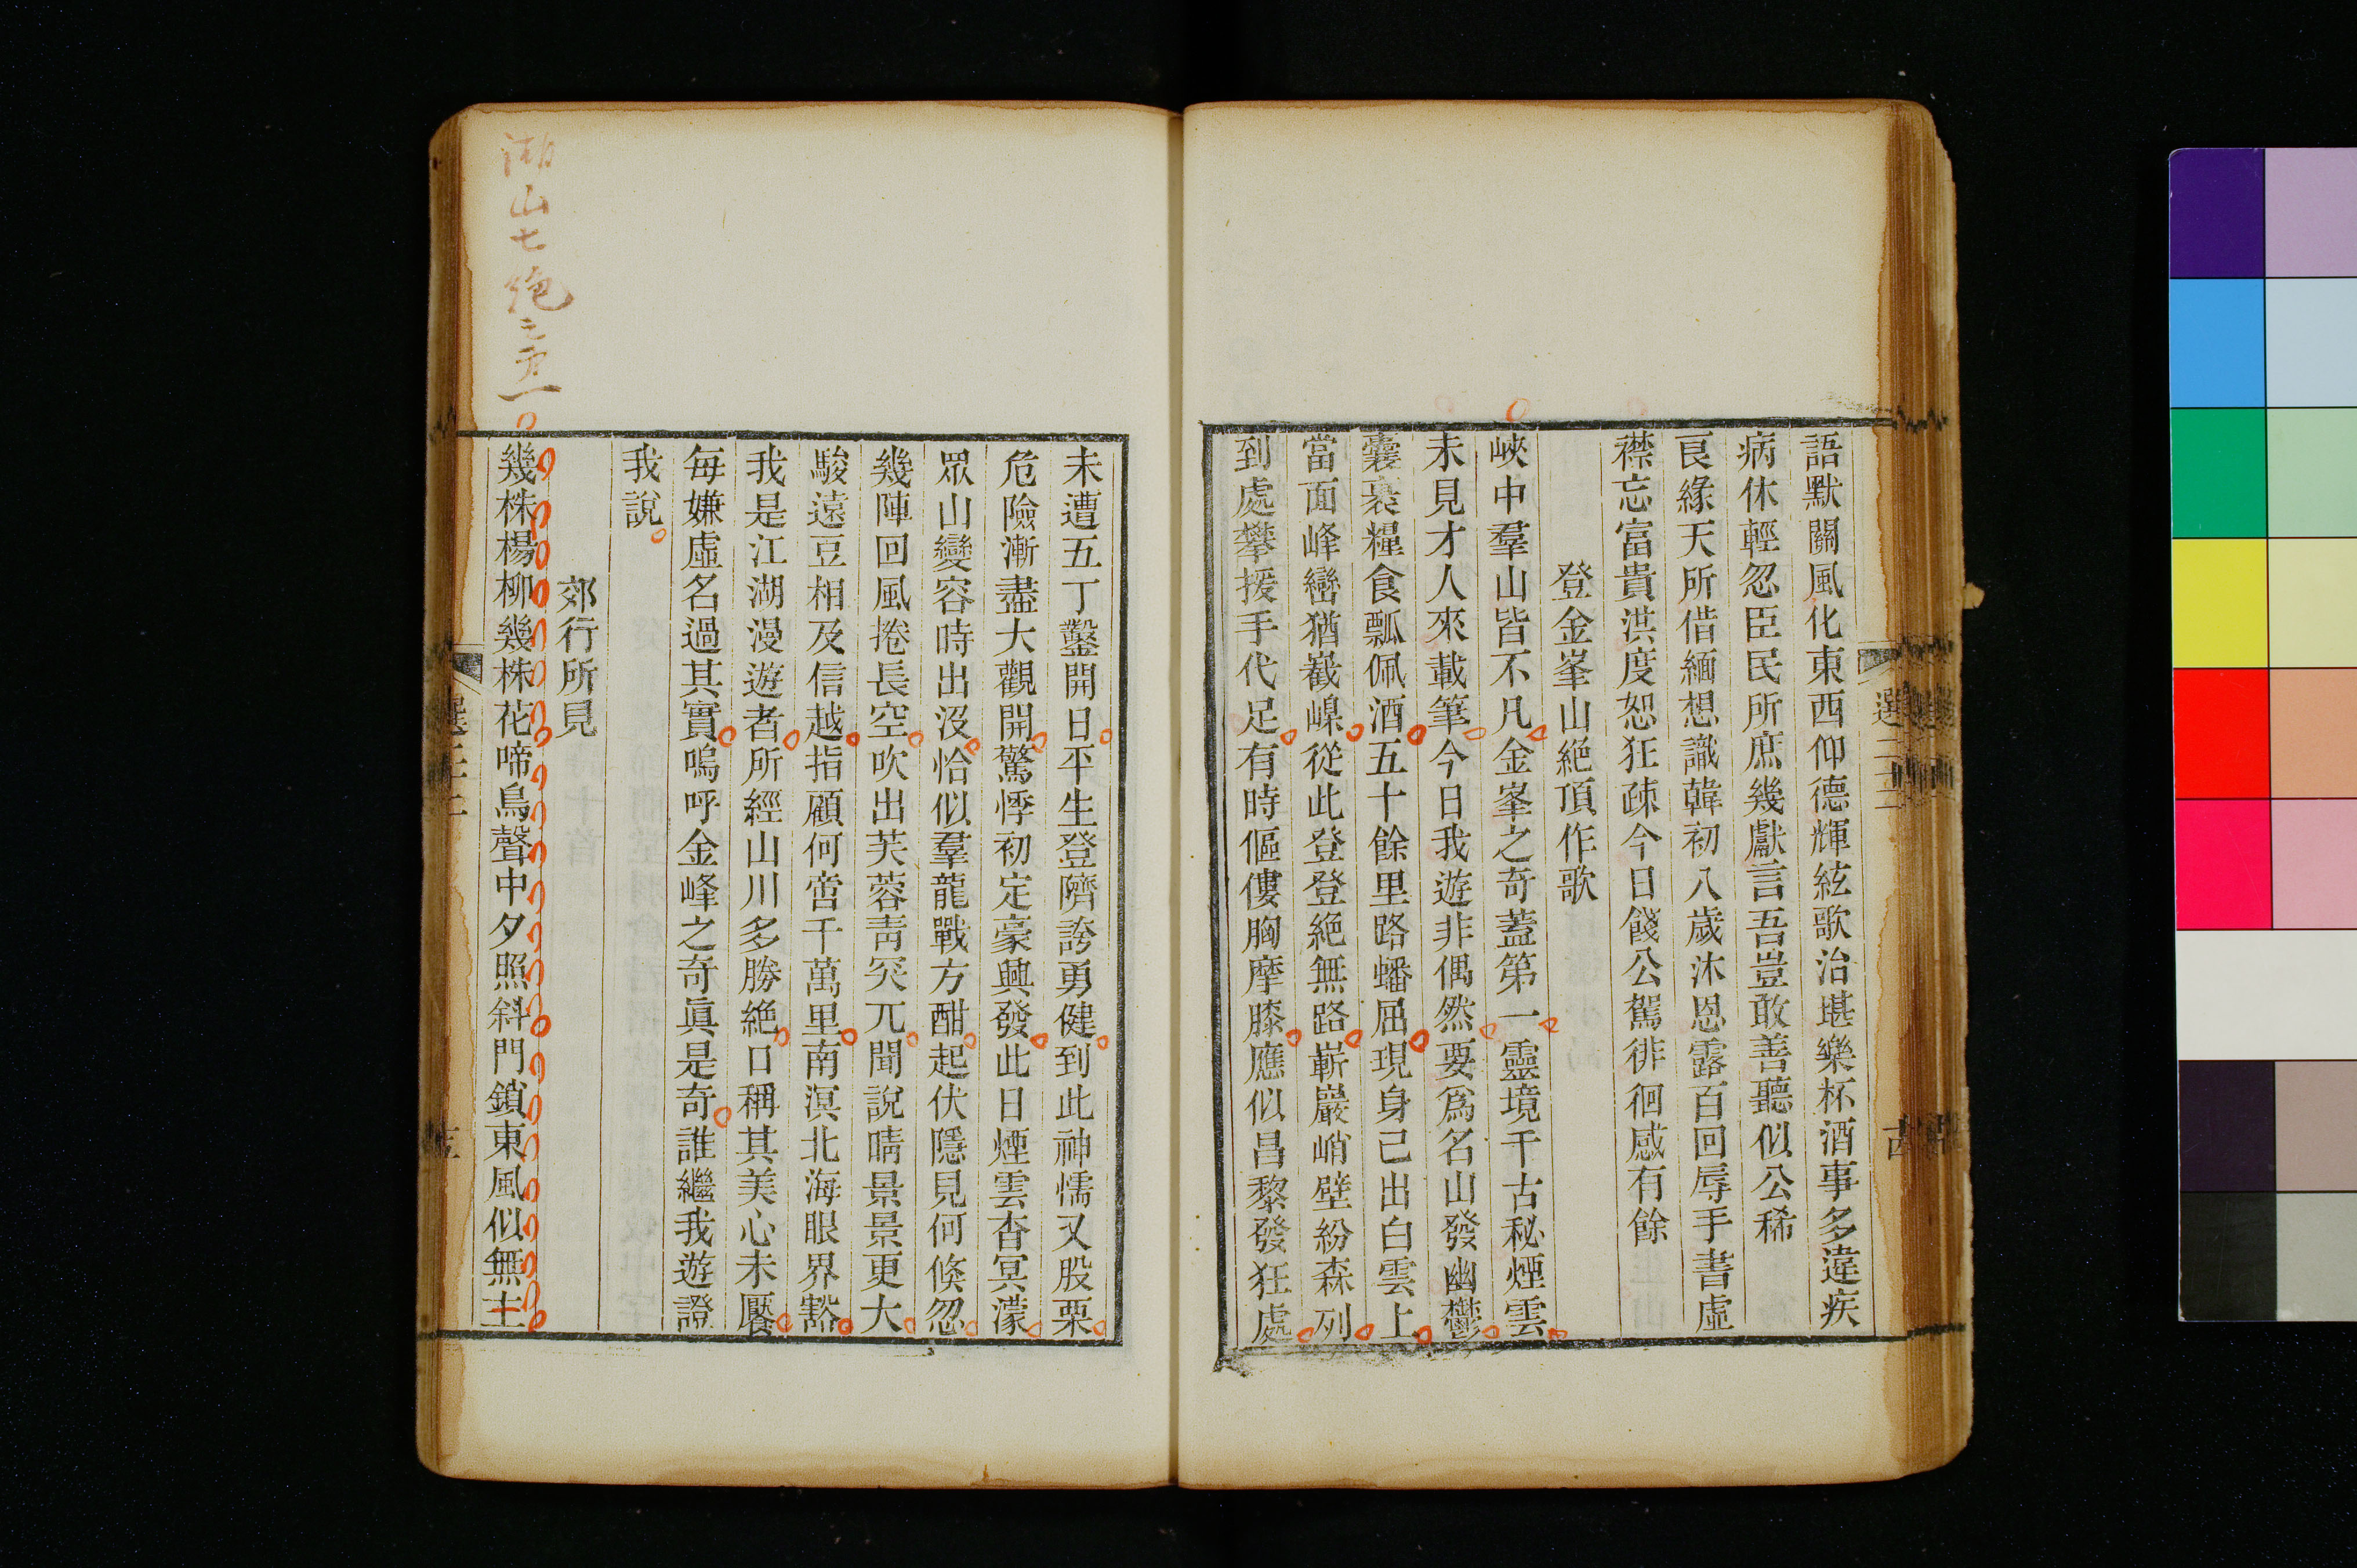 語默關風化東西仰德輝絃歌治堪樂杯酒事多違疾
病休輕忽臣民所庶幾獻言吾豈敢善聽似公稀
良緣天所借緬想識韓初八歲沐恩露百回辱手書虛
襟忘富貴洪度恕狂疎今日餞公駕徘徊感有餘
登金峯山絶頂作歌
峽中羣山皆不凡金峯之奇蓋第一靈境千古秘煙雲
未見才人來載筆今日我遊非偶然要爲名山發幽鬱
囊裹糧食瓢佩酒五十餘里路蟠屈現身已出白雲上
當面峰巒猶嶻嵲從此登登絶無路嶄巖峭壁紛森列
到處攀援手代足有時傴僂胸摩膝應似昌黎發狂處
未遭五丁鑿開日平生登隮誇勇健到此神懦又股栗
危險漸盡大觀開驚悸初定豪興發此日煙雲杳冥濛
眾山變容時出沒恰似羣龍戰方酣起伏隱見何倏忽
幾陣回風捲長空吹出芙蓉靑突兀聞說晴景景更大
駿遠豆相及信越指顧何啻千萬里南溟北海眼界豁
我是江湖漫遊者所經山川多勝絶口稱其美心未饜
每嫌虛名過其實嗚呼金峰之奇眞是奇誰繼我遊證
我說
郊行所見
湖山七絶之
幾株楊柳幾株花啼鳥聲中夕照斜門鎖東風似無主